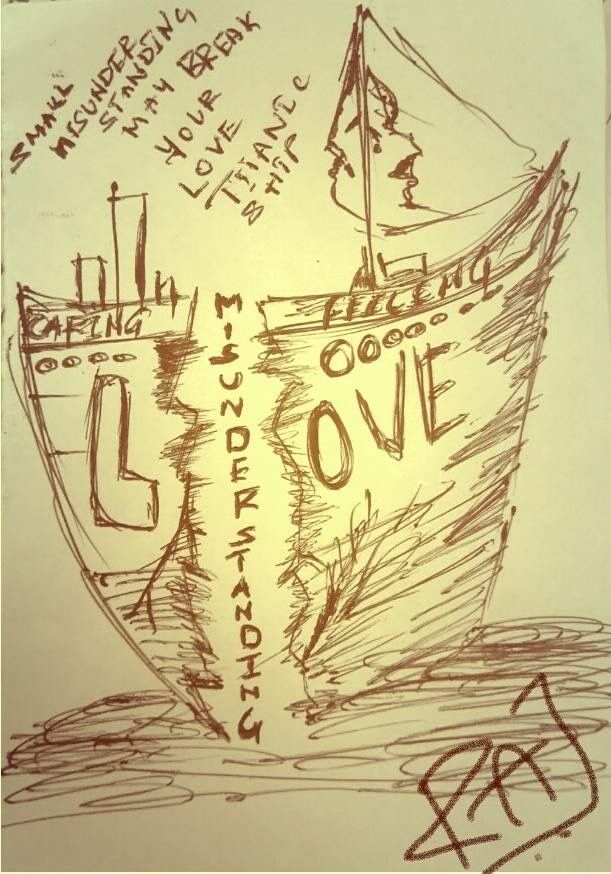 SMALL
MISUNDER
STANDING
MAY BREAK
YOUR
LOVE
TITANIC
SHIP
CARING
FEELING
L
OVE
MISUNDERSTANDING
RAJ